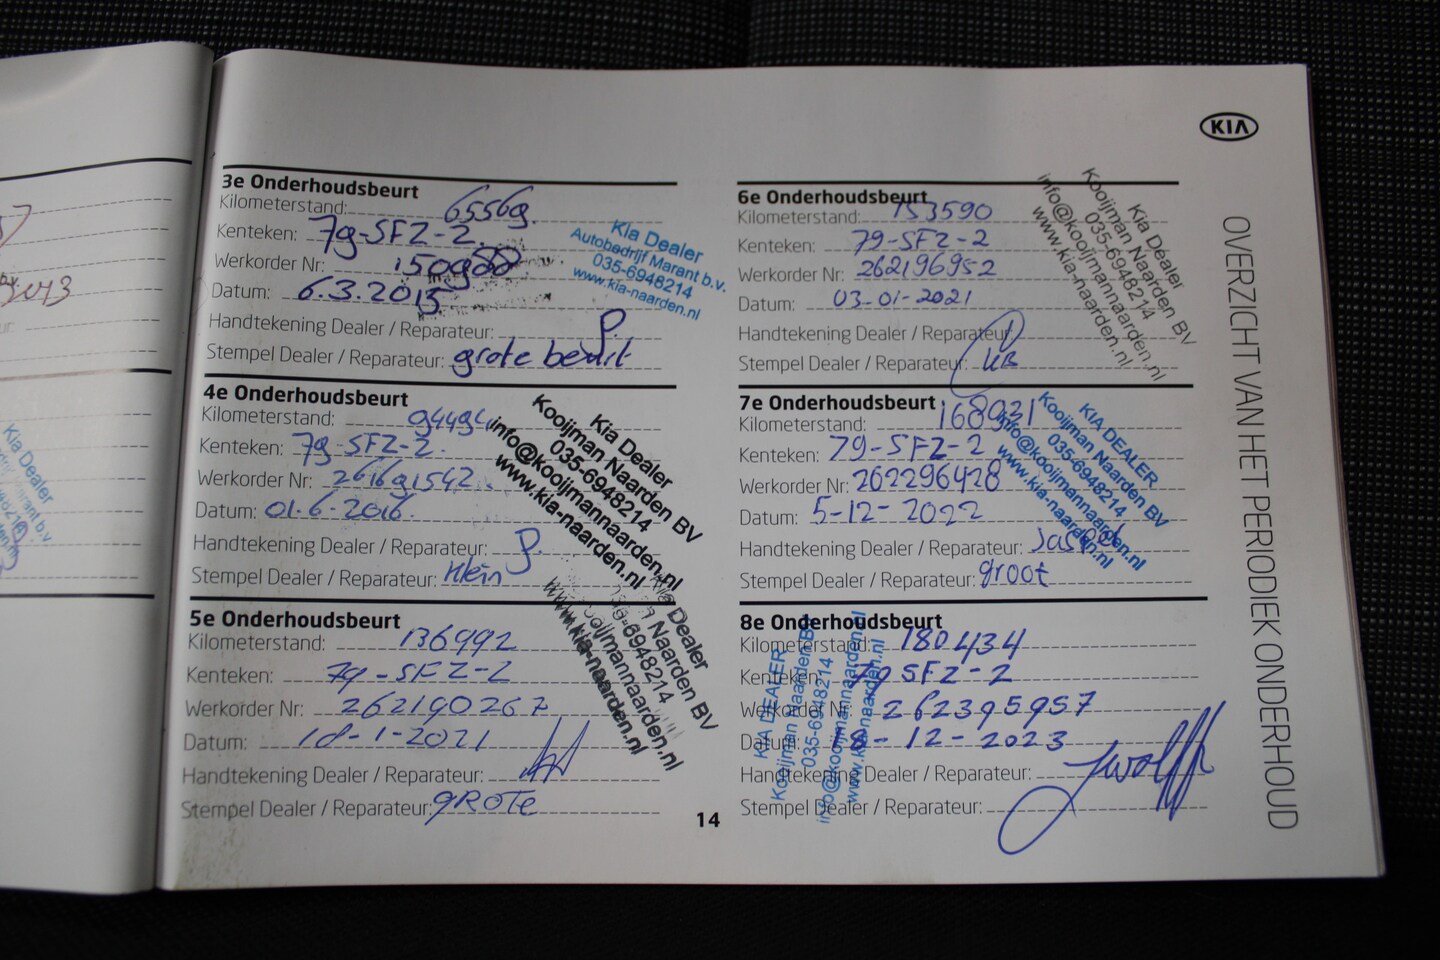 KIA
OVERZICHT VAN HET PERIODIEK ONDERHOUD
3e Onderhoudsbeurt
Kilometerstand: 65569.
Kenteken: 79-SFZ-2.
Werkorder Nr:
Datum: 6.3.2015
Handtekening Dealer / Reparateur:
Stempel Dealer / Reparateur: grote beurt
Kia Dealer
Autobedrijf Marant b.v.
035-6948214
www.kia-naarden.nl
4e Onderhoudsbeurt
Kilometerstand: 94494
Kenteken: 79-SFZ-2.
Werkorder Nr: 261691542
Datum: 01.6.2016.
Handtekening Dealer / Reparateur:
Stempel Dealer / Reparateur: klein
Kia Dealer
Kooijman Naarden BV
035-6948214
info@kooijmannaarden.nl
www.kia-naarden.nl
5e Onderhoudsbeurt
Kilometerstand: 136992
Kenteken: 79-SFZ-2
Werkorder Nr: 262190267
Datum: 18-1-2021
Handtekening Dealer / Reparateur:
Stempel Dealer / Reparateur: GROTE
Dealer
Naarden BV
6948214
www.kia-naarden.nl
6e Onderhoudsbeurt
Kilometerstand: 153590
Kenteken: 79-SFZ-2
Werkorder Nr: 262196952
Datum: 03-01-2021
Handtekening Dealer / Reparateur:
Stempel Dealer / Reparateur: KB
Kia Dealer
Kooijman Naarden BV
035-6948214
info@kooijmannaarden.nl
www.kia-naarden.nl
7e Onderhoudsbeurt
Kilometerstand: 168931
Kenteken: 79-SFZ-2
Werkorder Nr: 262296428
Datum: 5-12-2022
Handtekening Dealer / Reparateur:
Stempel Dealer / Reparateur: groot
KIA DEALER
Kooijman Naarden BV
035-6948214
info@kooijmannaarden.nl
www.kia-naarden.nl
8e Onderhoudsbeurt
Kilometerstand: 180434
Kenteken: 79 SFZ-2
Werkorder Nr: 262395957
Datum: 8-12-2023
Handtekening Dealer / Reparateur:
Stempel Dealer / Reparateur:
KIA DEALER
Kooijman Naarden BV
035-6948214
info@kooijmannaarden.nl
www.kia-naarden.nl
14
Kia Dealer